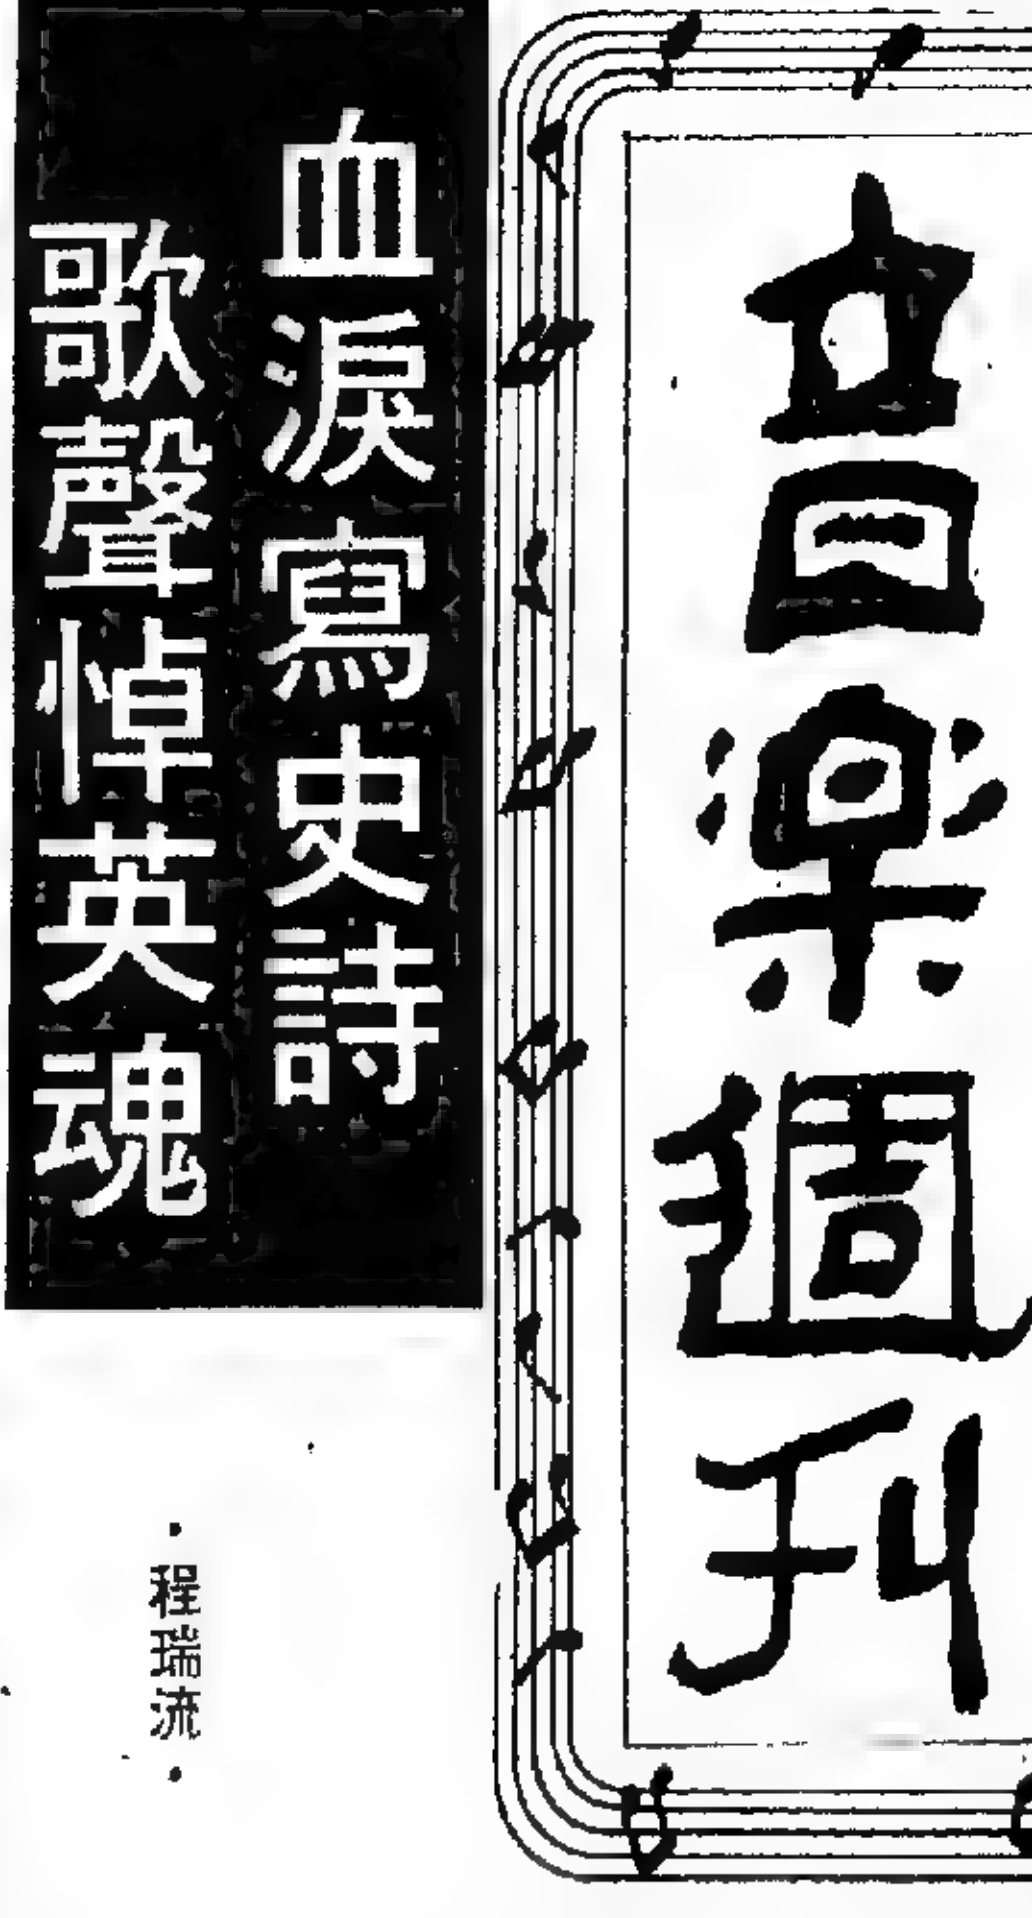 音楽週刊
血淚寫史詩
歌聲悼英魂
·程瑞流·